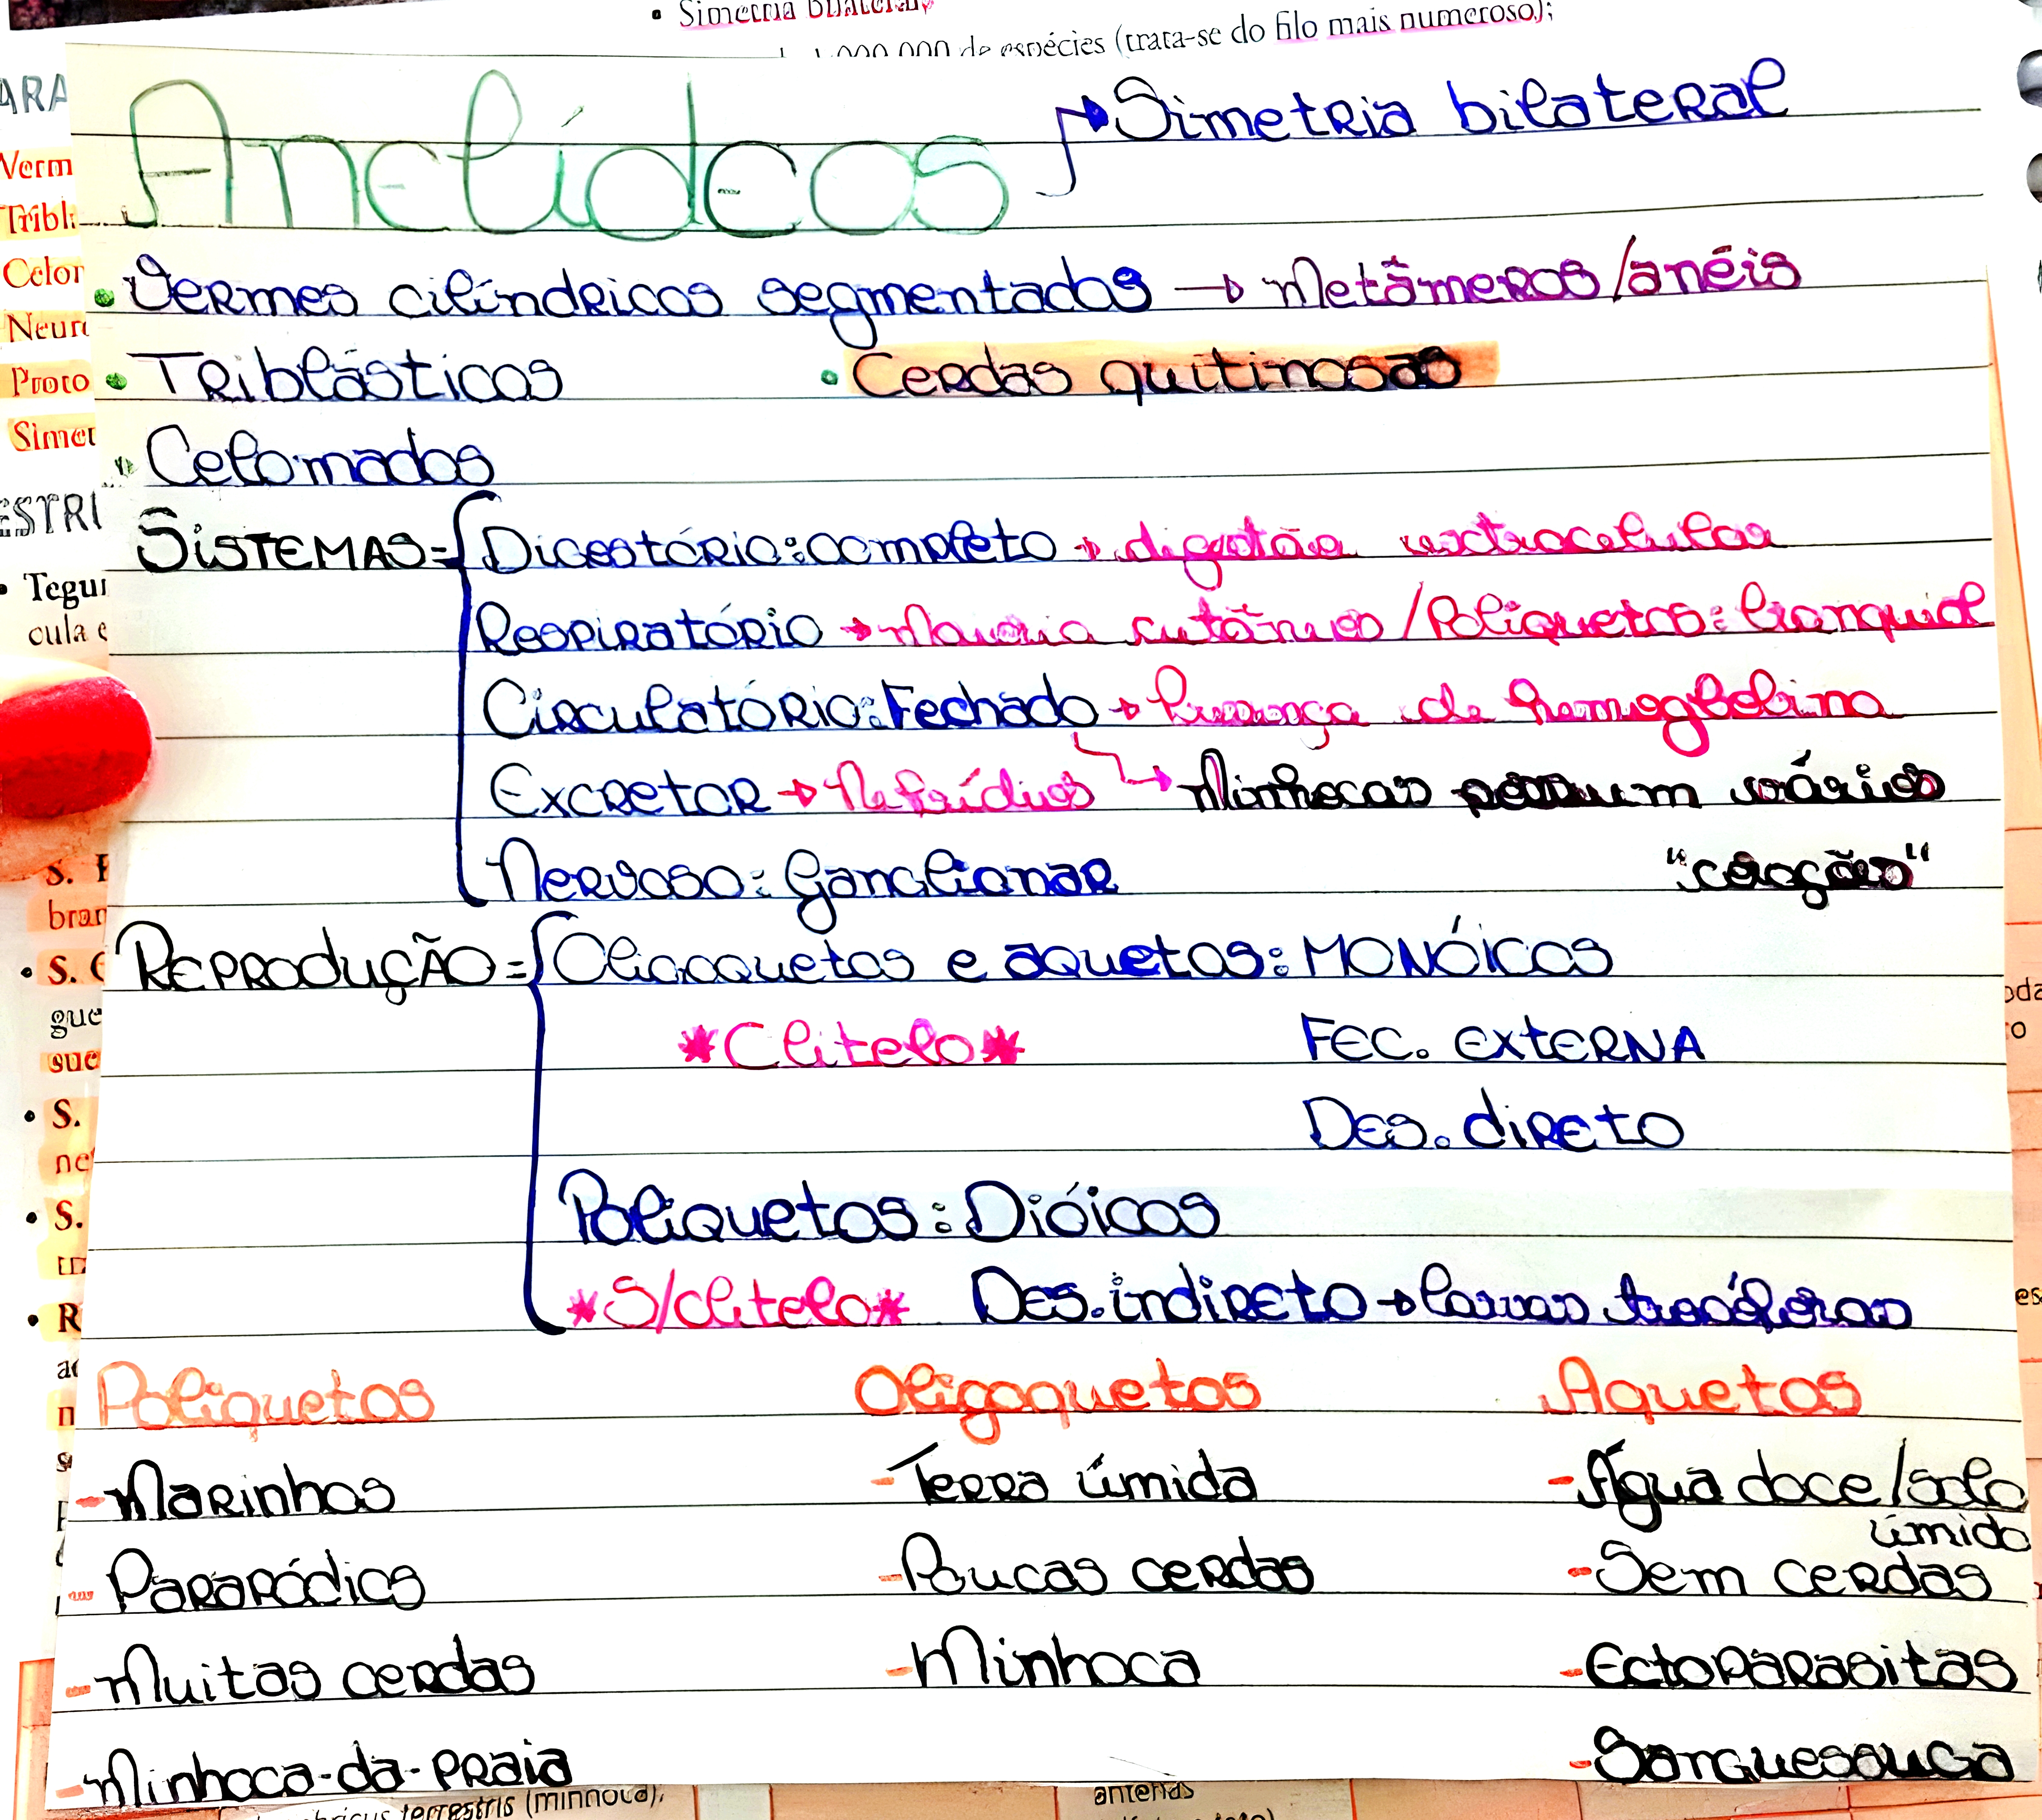 • Simetria bilateral;
de espécies (trata-se do filo mais numeroso);
Anelídeos → Simetria bilateral
• Vermes cilíndricos segmentados → Metâmeros/anéis
• Triblásticos • Cerdas quitinosas
• Celomados
SISTEMAS = Digestório: completo → digestão extracelular
Respiratório → Maioria cutânea / Poliquetos: branquial
Circulatório: Fechado → Presença de hemoglobina
Excretor → Nefrídios → Minhocas possuem vários
Nervoso: Ganglionar "corações"
REPRODUÇÃO = Oligoquetas e aquetos: MONÓICOS
*Clitelo* FEC. EXTERNA
Des. direto
Poliquetos: Dióicos
*S/clitelo* Des. indireto → larvas trocóforas
Poliquetos Oligoquetos Aquetos
- Marinhos - Terra úmida - Água doce/solo
úmido
- Parapódios - Poucas cerdas - Sem cerdas
- Muitas cerdas - Minhoca - Ectoparasitas
- Minhoca-da-praia - Sanguessuga
terrestris (minhoca), antenas